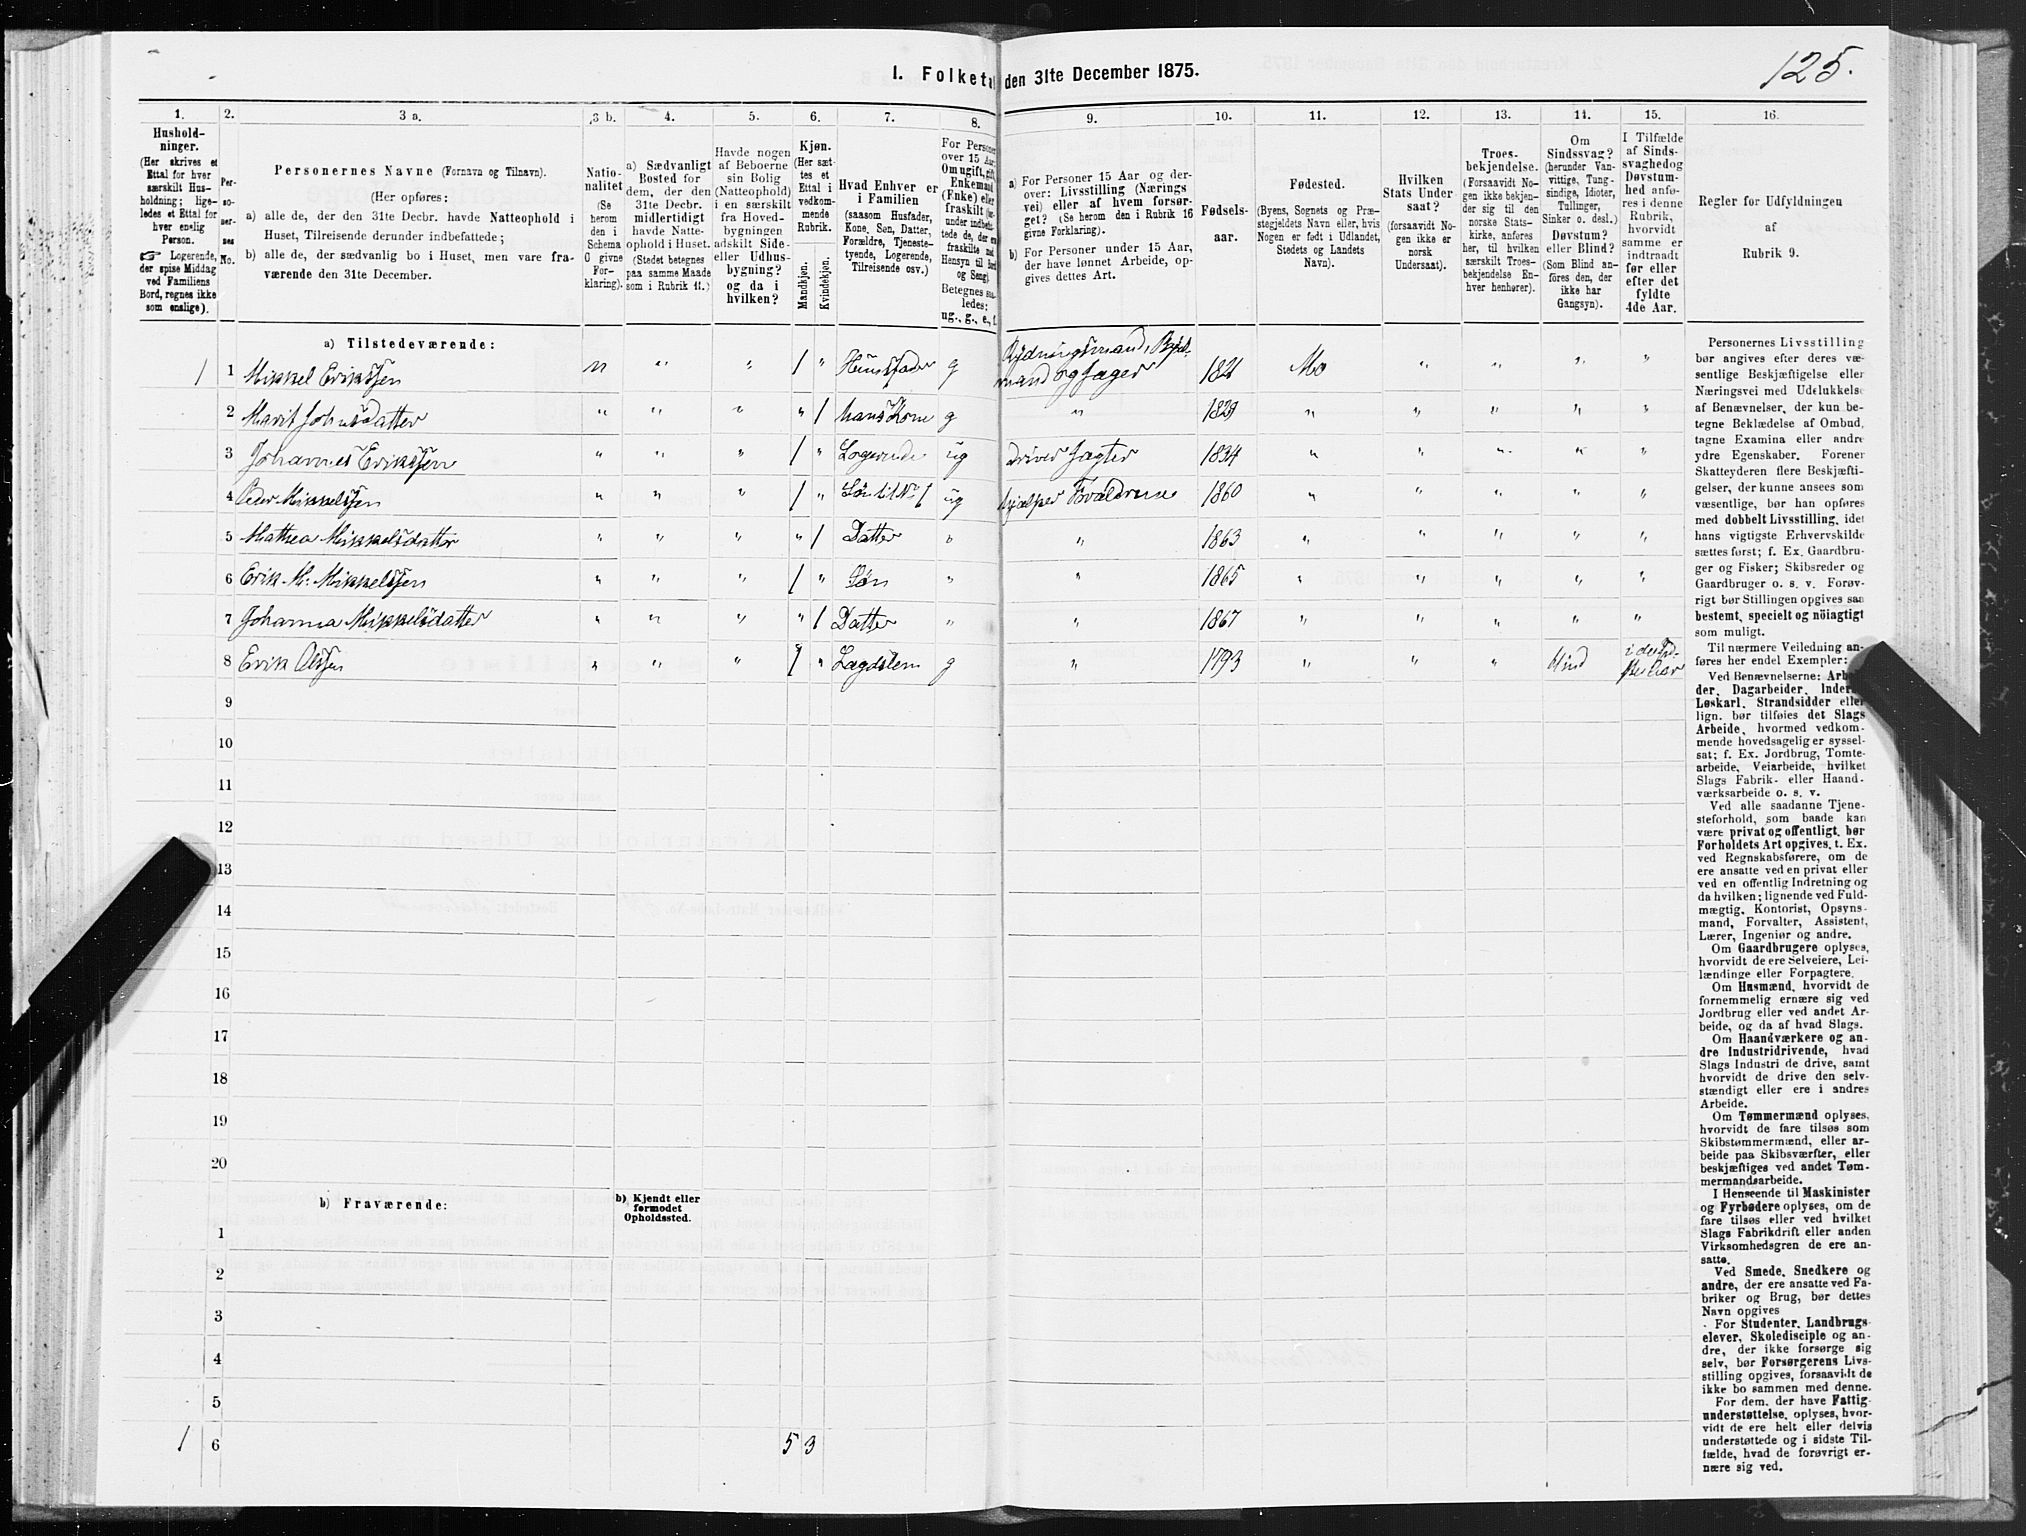 125.
I. Folketal den 31te December 1875.
1. 2. 3 a. 3 b. 4. 5. 6. 7. 8. 9. 10. 11. 12. 13. 14. 15. 16.
Hushold-
ninger.
(Her skrives et
Ettal for hver
særskilt Hus-
holdning; lige-
ledes et Ettal for
hver enslig
Person.
☞ Logerende,
der spise Middag
ved Familiens
Bord, regnes ikke
som enslige).
Per-
so-
ner-
nes
No.
Personernes Navne (Fornavn og Tilnavn).
(Her opføres:
a) alle de, der den 31te Decbr. havde Natteophold i
Huset, Tilreisende derunder indbefattede;
b) alle de, der sædvanlig bo i Huset, men vare fra-
værende den 31te December.
Natio-
nalitet
(Se
herom
den i
Schema
O givne
For-
klaring).
a) Sædvanligt
Bosted for
dem, der den
31te Decbr.
midlertidigt
havde Natte-
ophold i Huset.
(Stedet betegnes
paa samme Maade
som i Rubrik 11.)
Havde nogen
af Beboerne
sin Bolig
(Natteophold)
i en særskilt
fra Hoved-
bygningen
adskilt Side-
eller Udhus-
bygning?
og da i
hvilken?
Kjøn.
(Her sæt-
tes et
Ettal i
vedkom-
mende
Rubrik.
Mandkjøn.
Kvindekjøn.
Hvad Enhver er
i Familien
(saasom Husfader,
Kone, Søn, Datter,
Forældre, Tjeneste-
tyende, Logerende,
Tilreisende osv.)
For Personer
over 15 Aar:
Om ugift, gift,
Enkemand
(Enke) eller
fraskilt
Hensyn til Bord
og Seng)
Betegnes saa-
ledes:
ug., g., e., f.
a) For Personer 15 Aar og der-
over: Livsstilling (Nærings
vei) eller af hvem forsør-
get? (Se herom den i Rubrik 16
givne Forklaring).
b) For Personer under 15 Aar,
der have lønnet Arbeide, op-
gives dettes Art.
Fødsels-
aar.
Fødested.
(Byens, Sognets og Præ-
stegjeldets Navn eller, hvis
Nogen er født i Udlandet,
Stedets og Landets
Navn).
Hvilken
Stats Under
saat?
(forsaavidt No-
gen ikke er
norsk
Undersaat).
Troes-
bekjendelse.
(Forsaavidt No-
gen ikke bekjen-
der sig til den
norske Stats-
kirke, anføres
her, til hvilken
særskilt Troes-
bekjendelse En-
hver henhører).
Om
Sindssvag?
(herunder Van-
vittige, Tung-
sindige, Idioter,
Tullinger,
Sinker o. desl.)
Døvstum?
eller Blind?
(Som Blind an-
føres den, der
ikke har
Gangsyn).
I Tilfælde
af Sinds-
svaghedog
Døvstum-
hed anfø-
res i denne
Rubrik,
hvorvidt
samme er
indtraadt
før eller
efter det
fyldte
4de Aar.
Regler for Udfyldningen
af
Rubrik 9.
a) Tilstedeværende:
1 1 Mikkel Erikssen n " " 1 " Huusfader g Rydningsmand, Bygsel-
mand og Jæger 1821 Mo " " " "
2 Marit Johnsdatter " " " " 1 hans Kone g " 1829 " " " " "
3 Johannes Erikssen " " " 1 " Logerende ug driver Jagter 1834 " " " " "
4 Peder Mikkelssen " " " 1 " Søn til No 1 ug hjælper Forældrene 1860 " " " " "
5 Mathea Mikkelsdatter " " " " 1 Datter " " 1863 " " " " "
6 Erik M. Mikkelssen " " " 1 " Søn " " 1865 " " " " "
7 Johanna Mikkelsdatter " " " " 1 Datter " " 1867 " " " " "
8 Erik Olssen " " " 1 " Lægdslem g " 1793 " " " blind
9
10
11
12
13
14
15
16
17
18
19
20
b) Fraværende:
b) Kjendt eller
formodet
Opholdssted.
1
2
3
4
5
1 6 5 3
Personernes Livsstilling
bør angives efter deres væ-
sentlige Beskjæftigelse eller
Næringsvei med Udelukkelse
af Benævnelser, der kun be-
tegne Beklædelse af Ombud,
tagne Examina eller andre
ydre Egenskaber. Forener
Skatteyderen flere Beskjæfti-
gelser, der kunne ansees som
væsentlige, bør han opføres
med dobbelt Livsstilling, idet
hans vigtigste Erhvervskilde
sættes først; f. Ex. Gaardbru-
ger og Fisker; Skibsreder og
Gaardbruger o. s. v. Forøv-
rigt bør Stillingen opgives saa
bestemt, specielt og nöiagtigt
som muligt.
Til nærmere Veiledning an-
føres her endel Exempler:
Ved Benævnelserne: Arbei-
der, Dagarbeider, Inderst,
Løskarl, Strandsidder eller
lign. bør tilføies det Slags
Arbeide, hvormed vedkom-
mende hovedsagelig er syssel-
sat; f. Ex. Jordbrug, Tomte-
arbeide, Veiarbeide, hvilket
Slags Fabrik- eller Haand-
værksarbeide o. s. v.
Ved alle saadanne Tjene-
steforhold, som baade kan
være privat og offentligt, bør
Forholdets Art opgives, t. Ex.
ved Regnskabsførere, om de
ere ansatte ved en privat eller
ved en offentlig Indretning og
da hvilken; lignende ved Fuld-
mægtig, Kontorist, Opsyns-
mand, Forvalter, Assistent,
Lærer, Ingeniør og andre.
Om Gaardbrugere oplyses,
hvorvidt de ere Selveiere, Lei-
lændinge eller Forpagtere.
Om Husmænd, hvorvidt de
fornemmelig ernære sig ved
Jordbrug eller ved andet Ar-
beide, og da af hvad Slags.
Om Haandværkere og an-
dre Industridrivende, hvad
Slags Industri de drive, samt
hvorvidt de drive den selv-
stændigt eller ere i andres
Arbeide.
Om Tømmermænd oplyses,
hvorvidt de fare tilsøs som
Skibstømmermænd, eller ar-
beide paa Skibsværfter, eller
beskjæftiges ved andet Tøm-
mermandsarbeide.
I Henseende til Maskinister
og Fyrbødere oplyses, om de
fare tilsøs eller ved hvilket
Slags Fabrikdrift eller anden
Virksomhedsgren de ere an-
satte.
Ved Smede, Snedkere og
andre, der ere ansatte ved Fa-
briker og Brug, bør dettes
Navn opgives
For Studenter, Landbrugs-
elever, Skoledisciple og an-
dre, der ikke forsørge sig
selv, bør Forsørgerens Livs-
stilling opgives, forsaavidt de
ikke bo sammen med denne.
For dem, der have Fattig-
understøttelse, oplyses, hvor-
vidt de ere helt eller delvis
understøttede og i sidste Til-
fælde, hvad de forøvrigt er-
nære sig ved.